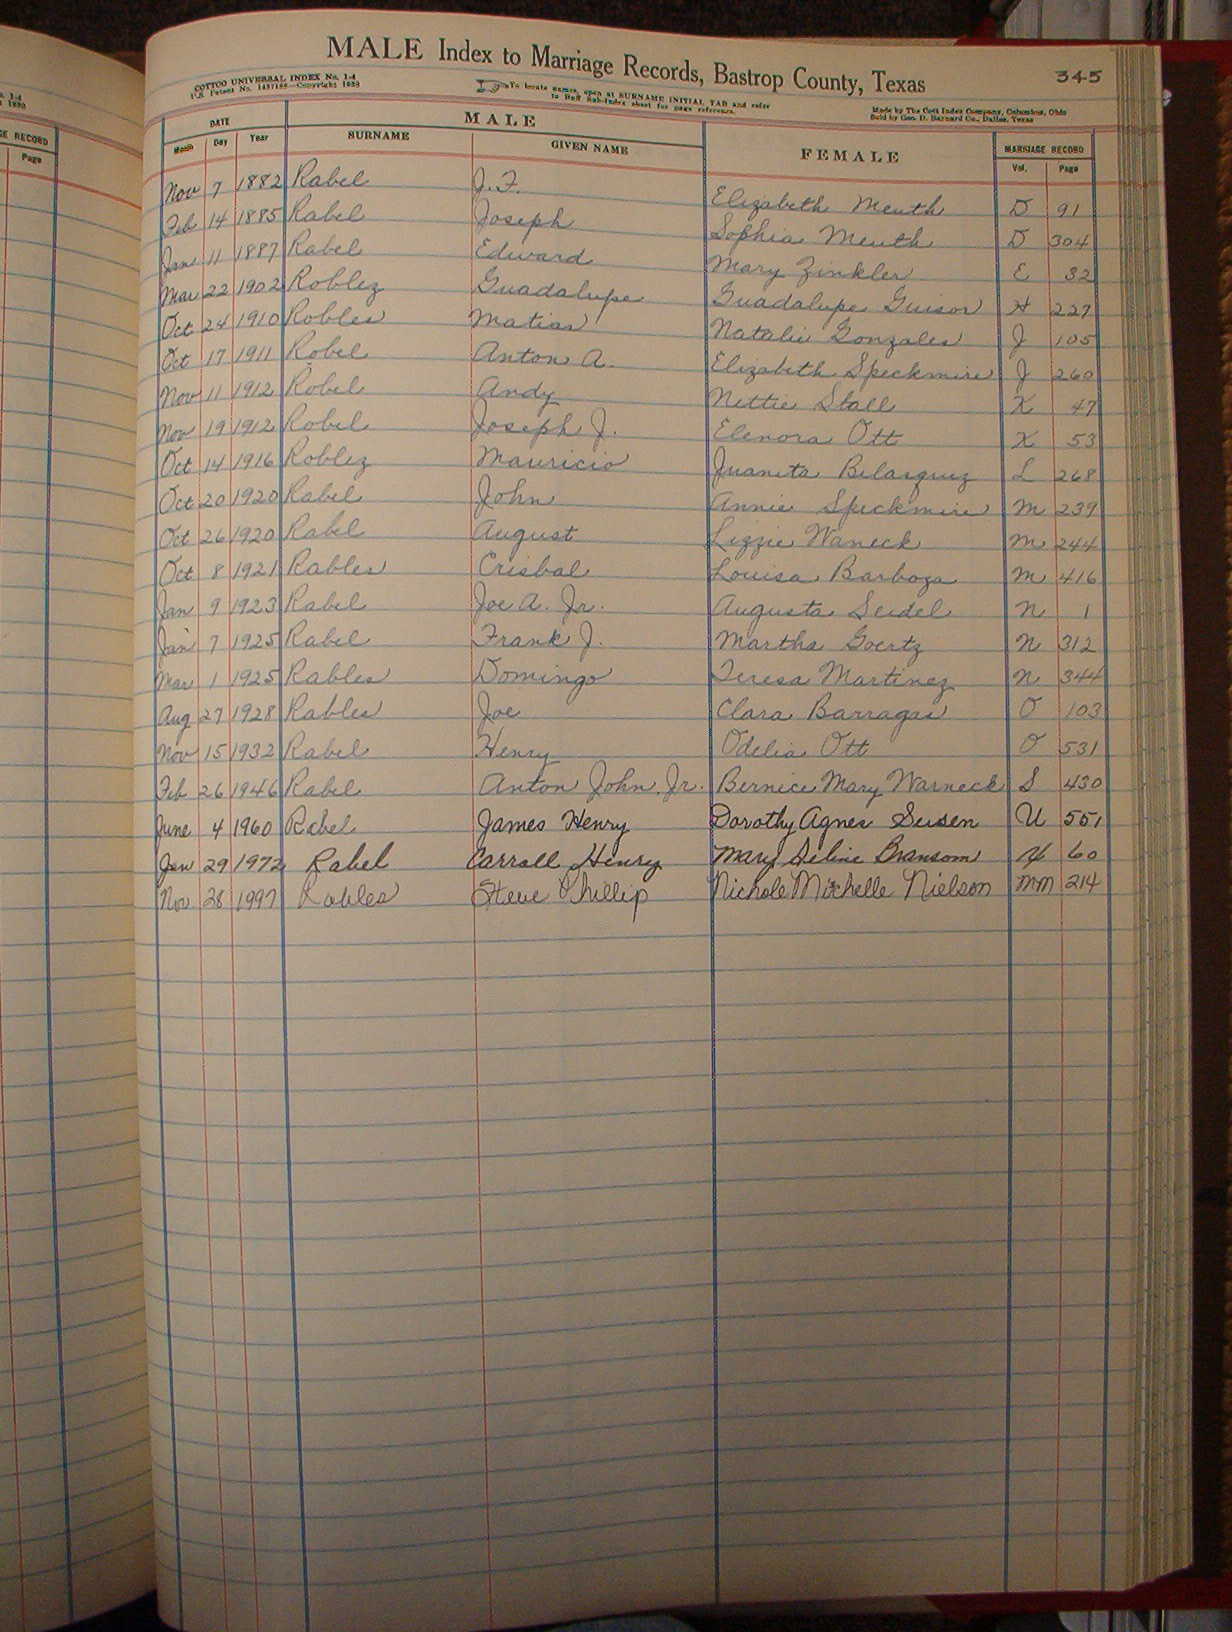 1-4
1933
GE RECORD
Page
MALE Index to Marriage Records, Bastrop County, Texas 345
COTTCO UNIVERSAL INDEX No. 1-4
U.S. Patent No. Copyright 1933
To locate names, open at SURNAME INITIAL TAB and refer
to Buff Sub-Index sheet for page reference.
Made by The Cott Index Company, Columbus, Ohio
Sold by Geo. D. Barnard Co., Dallas, Texas
DATE MALE FEMALE MARRIAGE RECORD
Month Day Year SURNAME GIVEN NAME Vol. Page
Nov 7 1882 Rabel J. F. Elizabeth Meuth D 91
Feb 14 1885 Rabel Joseph Sophia Meuth D 304
Jan 11 1887 Rabel Edward Mary Zinkler E 32
Mar 22 1902 Roblez Guadalupe Guadalupe Guisor H 227
Oct 24 1910 Robles Matias Natalie Gonzales J 105
Oct 17 1911 Robel Anton A. Elizabeth Speckmire J 260
Nov 11 1912 Robel Andy Nettie Stall K 47
Nov 19 1912 Robel Joseph J. Elenora Ott K 53
Oct 14 1916 Roblez Mauricio Juanita Belasquez L 268
Oct 20 1920 Rabel John Annie Speckmire M 239
Oct 26 1920 Rabel August Lizzie Waneck M 244
Oct 8 1921 Rables Crisbal Louisa Barboza M 416
Jan 9 1923 Rabel Joe A. Jr. Augusta Seidel N 1
Jan 7 1925 Rabel Frank J. Martha Goertz N 312
Mar 1 1925 Rables Domingo Teresa Martinez N 344
Aug 27 1928 Rables Joe Clara Barragas O 103
Nov 15 1932 Rabel Henry Odelia Ott O 531
Feb 26 1946 Rabel Anton John, Jr. Bernice Mary Warneck S 430
June 4 1960 Rabel James Henry Dorothy Agnes Seiden U 551
Jan 29 1972 Rabel Carroll Henry Mary Seline Bransom 60
Nov 28 1997 Robles Steve Phillip Nichole Michelle Nielson MM 214